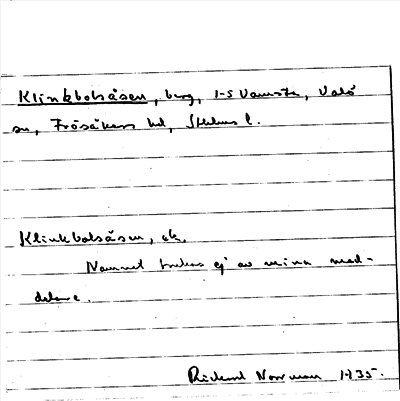 Klinkbolsåsen, berg, 1-5 Vamsta, Valö
sn, Frösåkers hd, Sthlms l.
Klinkbolsåsen, ok.
Namnet brukas ej av mina med-
delare.
Rickard Norrman 1935.